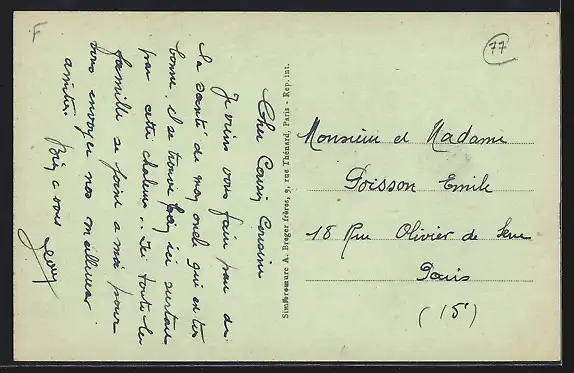 F
77
Cher Cousin Cousine
Je viens vous faire pau de
la santé de mon oncle qui es très
bonne. il se trouve bien ici surtout
par cette chaleur. Ici toute la
famille se joint a moi pour
vous envoyer nos meilleures
amitiés. Bien a vous
Simi-Bromure A. Breger frères, 9, rue Thénard, Paris - Rep. int.
Monsieur et Madame
Poisson Emile
18 Rue Olivier de Serre
Paris
(15e)